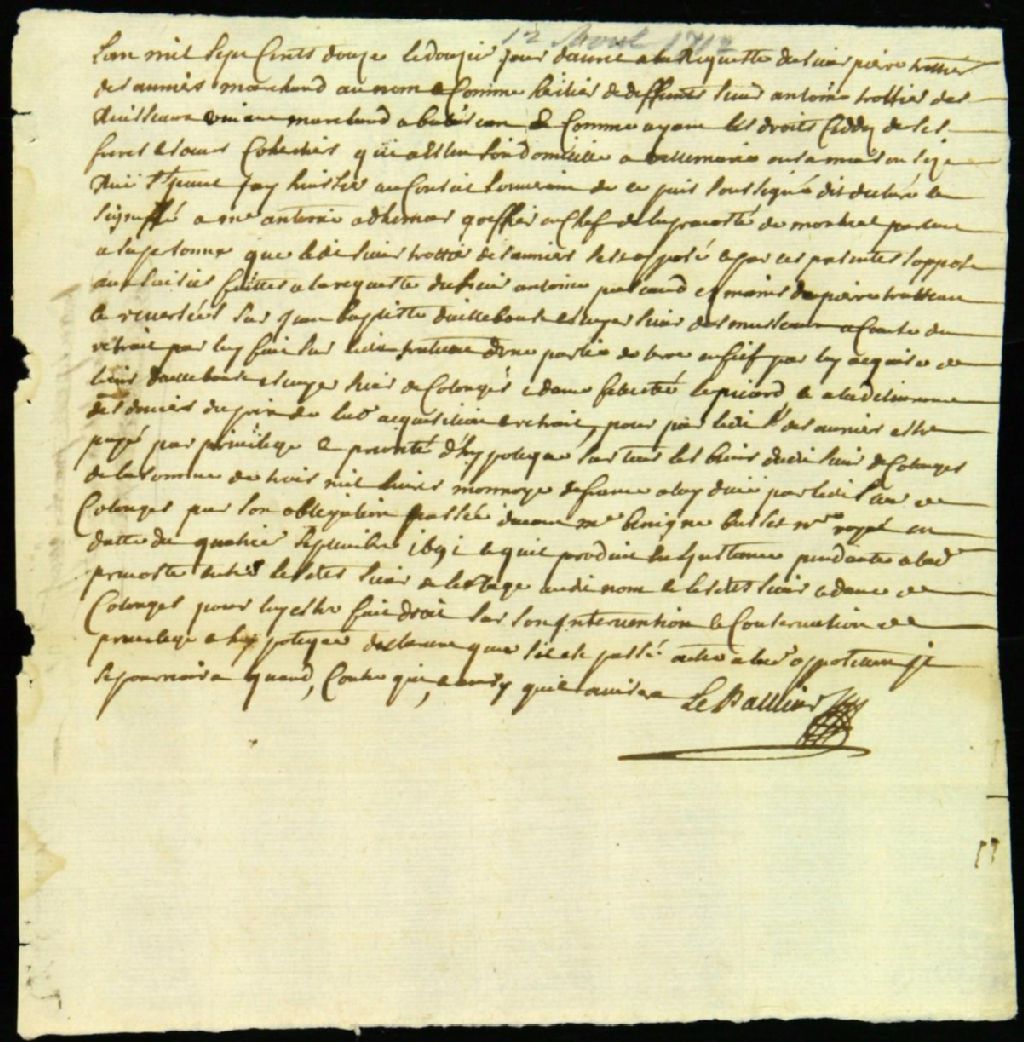 12 Avril 1712
Lan mil sept Cents douze le douzie jour davril a la Requeste du sieur pierre trottier
desauniers marchand au nom & Comme heritier de deffunts sieur antoine trottier des
Ruisseaux vivant marchand a batiscan & Comme ayant les droits Ceddez de ses
freres & soeurs Coheritiers qui a esleu son domicille a villemarie en sa maison size
Rüe St jay huissier au Conseil souverain de ce païs soussigné dit declaré &
signiffié a me antoine adhemar greffier en Chef de la prevosté de montreal parlant
a sa personne que ledit sieur trottier desauniers sest opposé & par ces presentes soppose
aux saisies faittes a la requeste du sieur antoine pascaud es mains de pierre trutteau
& reversées sur Jean baptiste daillebout escuyer sieur des musseaux a Cause du
retrait par luy fait sur ledit trutteau dune partie de terre en fief par luy acquise de
Louis daillebout escuyer sieur de Colonges & dame felicité lepicard & a la delivrance
des deniers du prix de lad acquisition & retrait, pour par ledit sr desauniers estre
payé par privilege & priorité d'hypoteque sur tous les biens dudit sieur de Colonges
de la somme de trois mil livres monnoye de france a luy deüe par ledit sieur de
Colonges par son obligation passée devant me benigne basset nre royal en
datte du quatrie septembre 1691 & quil produit en Linstance pendante a lad
prevosté entre lesdits sieur de lestage audit nom & lesdits sieur & dame de
Colonges pour luy estre fait droit sur son Intervention & Conservation de
privilege & hypoteque declarant que sil est passé outre a lad opposition il
se pourvoira quand, Contre qui, & ainsy quil avisera Le Pallieur